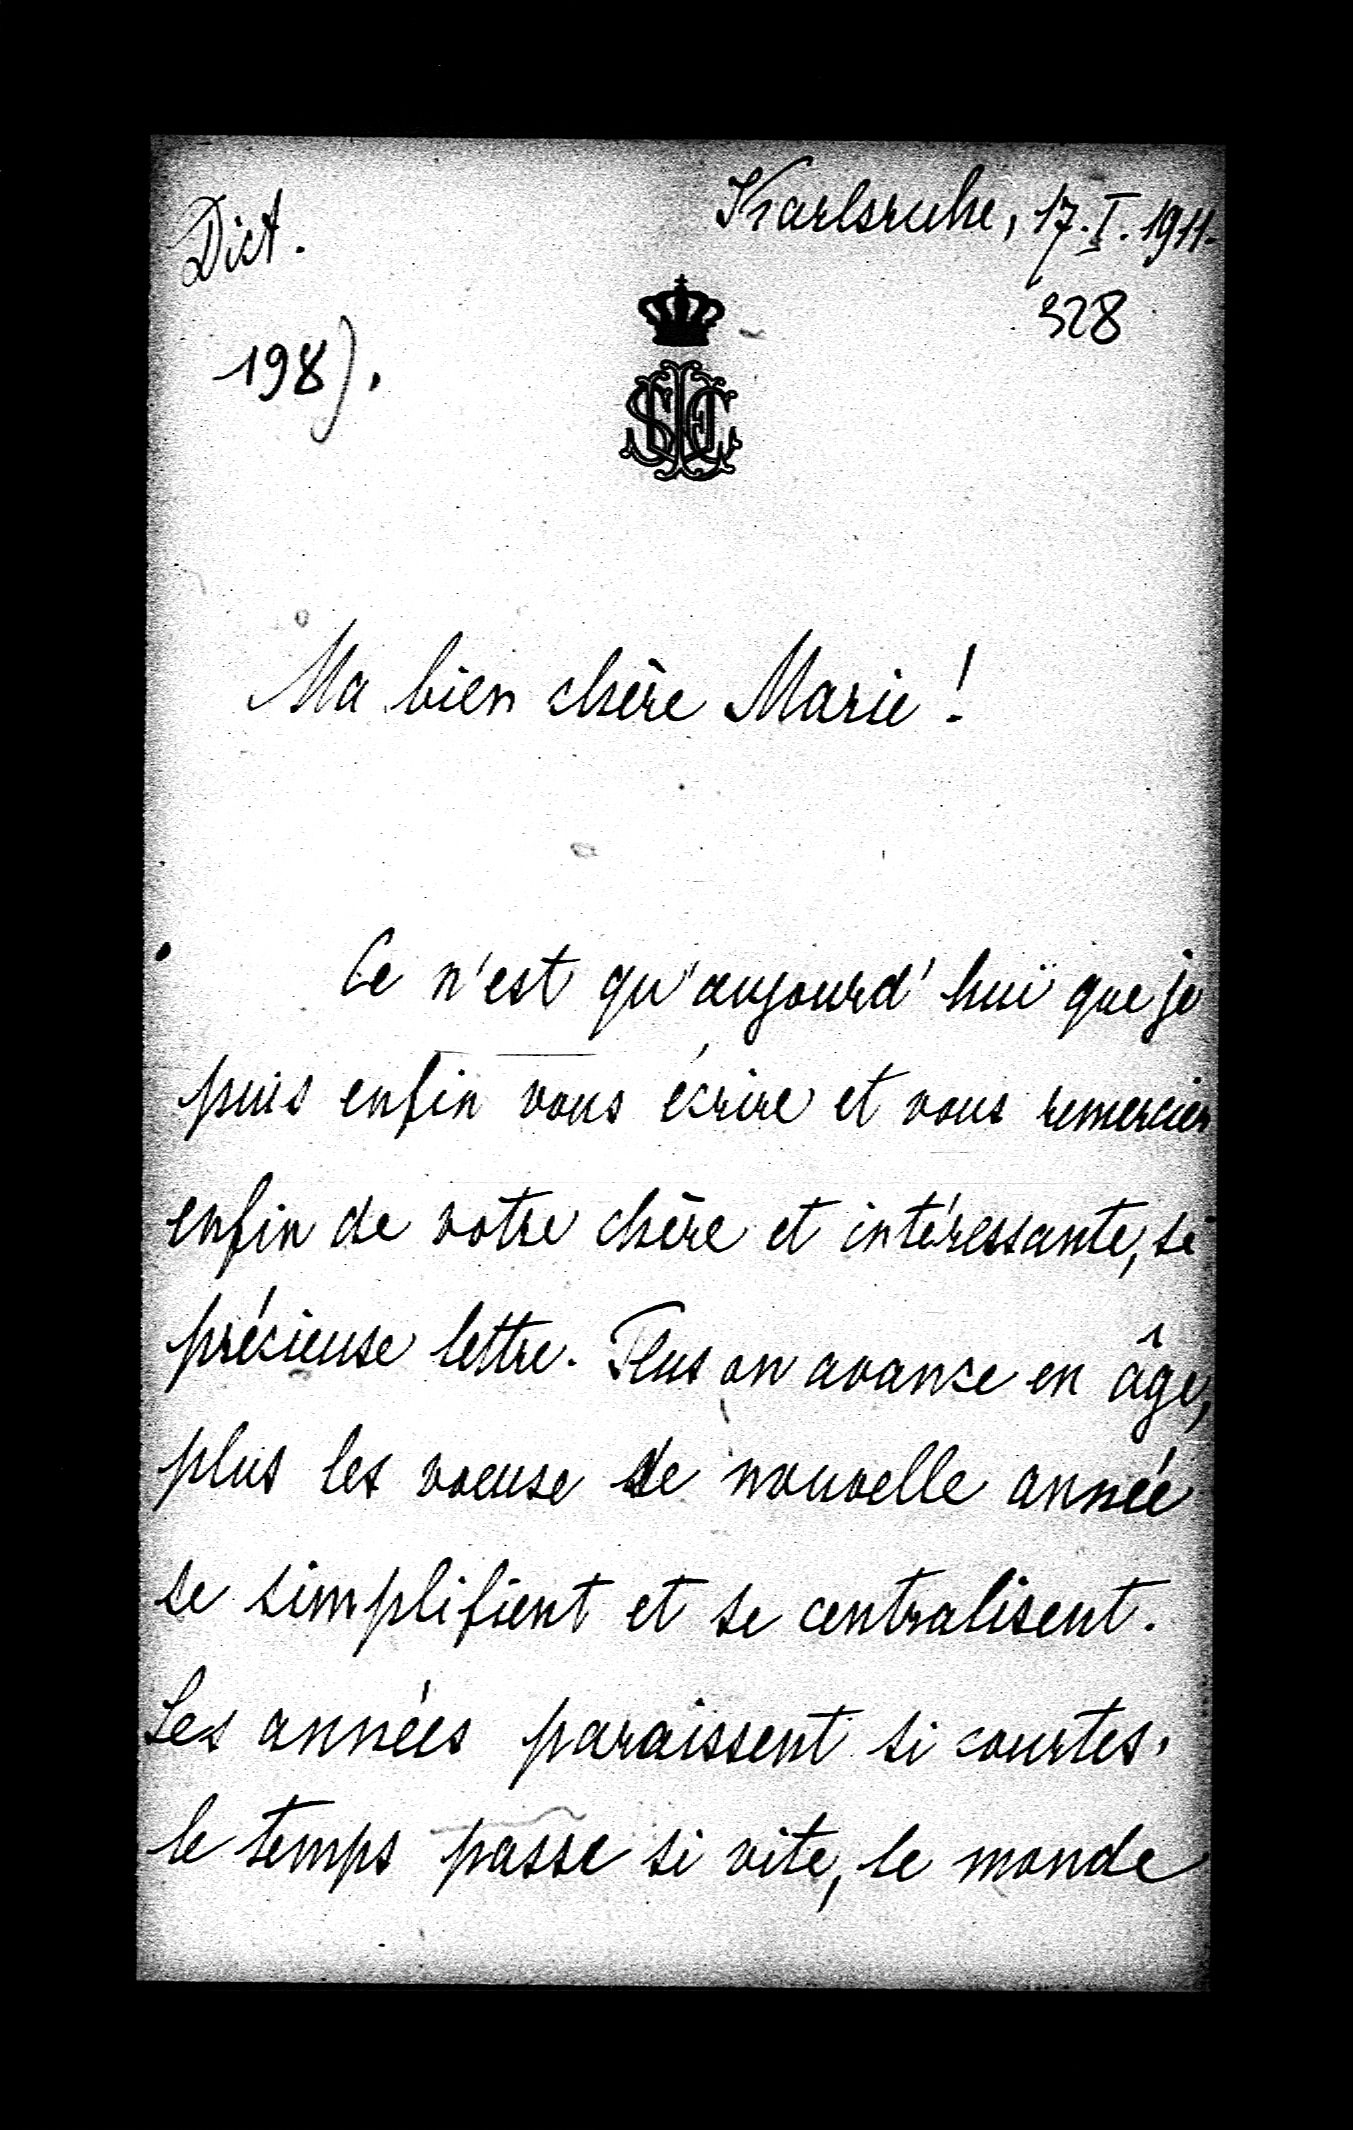 Karlsruhe, 17. I. 1911.
Dict.
328
198).
Ma bien chère Marie !
Ce n'est qu'aujourd'huï que je
puis enfin vous écrire et vous remercier
enfin de votre chère et intéressante, si
précieuse lettre. Plus on avance en âge,
plus les voeuse de nouvelle année
se simplifient et se centralisent.
Les années paraissent si courtes,
le temps passe si vite, le monde